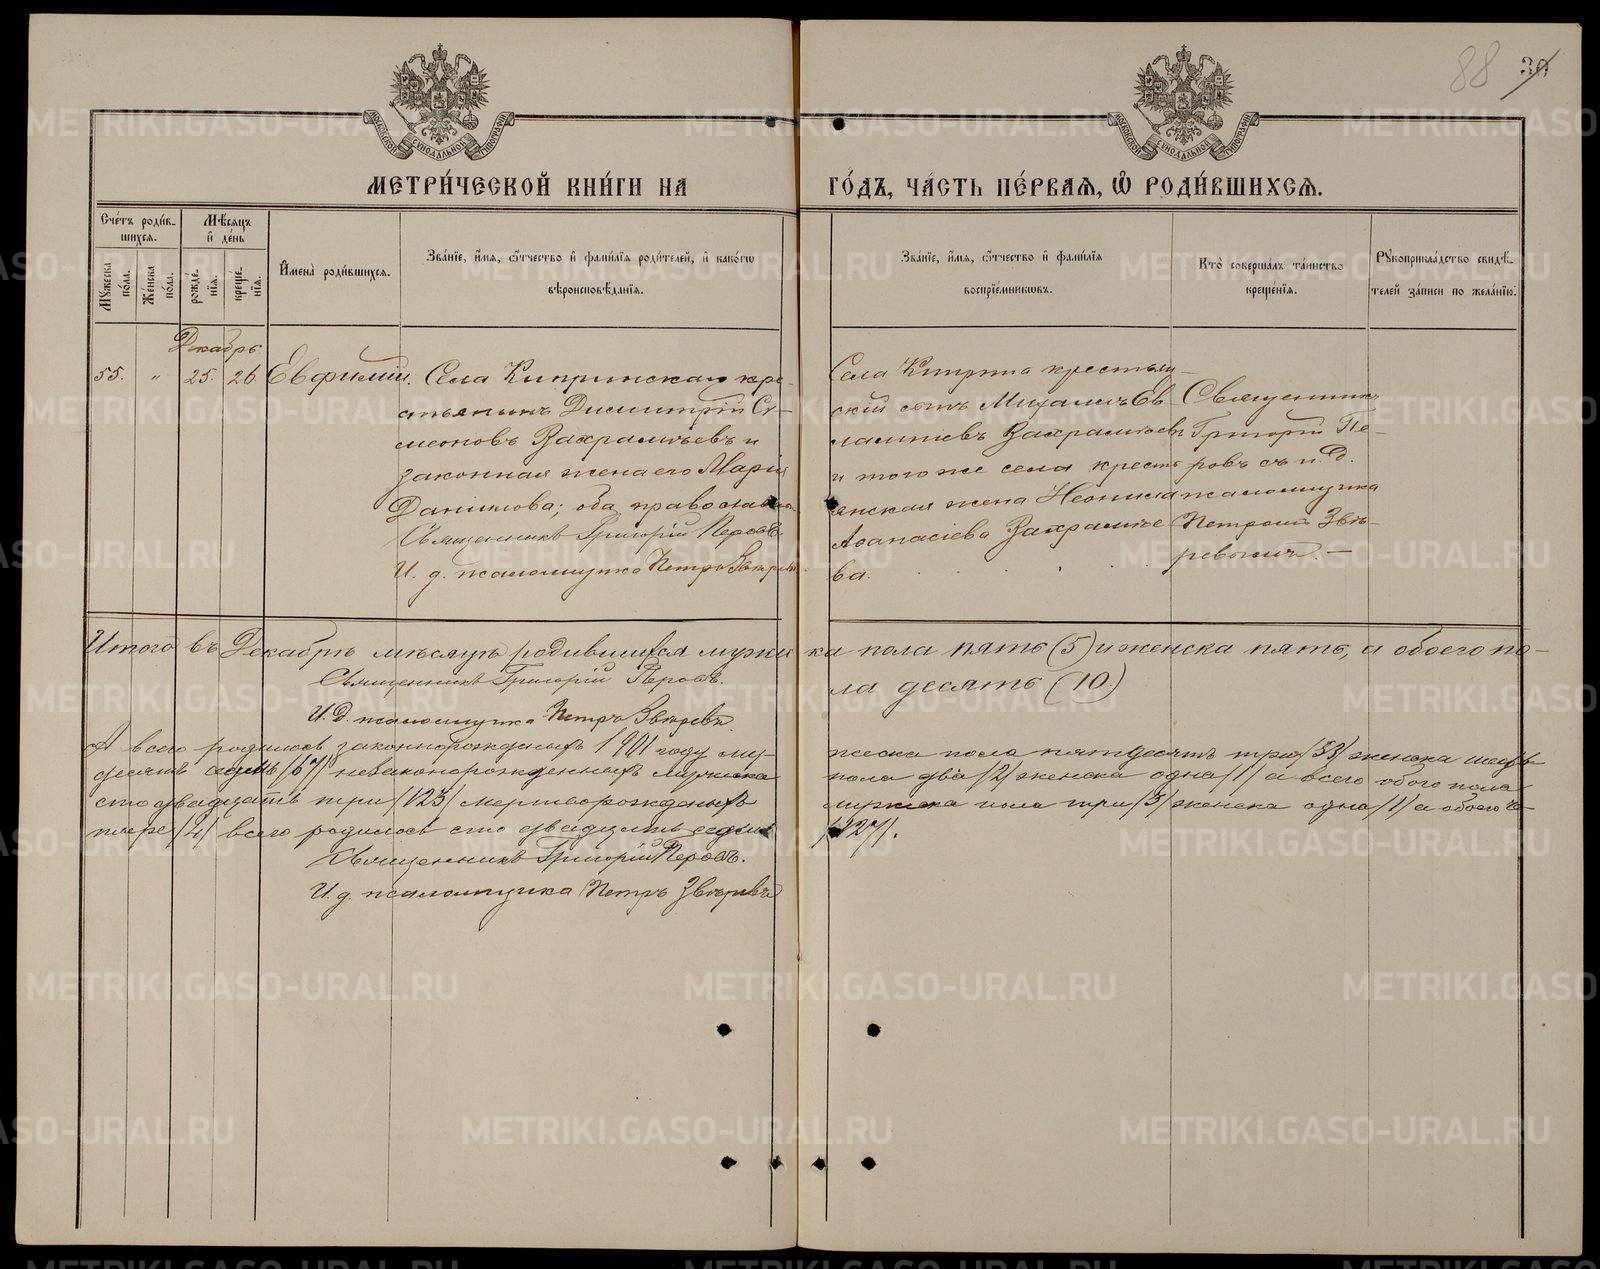 88 30
МОСКОВСКОЙ СѴНОДАЛЬНОЙ ТИПОГРАФІИ
МОСКОВСКОЙ СѴНОДАЛЬНОЙ ТИПОГРАФІИ
МЕТРИ́ЧЕСКОЙ КНИ́ГИ НА ГО́ДЪ, ЧА́СТЬ ПЕ́РВАѦ, Ѡ РОДИ́ВШИХСѦ.
Сче́тъ роди́в-
шихсѧ.
Мꙋ́жеска по́ла.
Же́нска по́ла.
Мѣ́сѧцъ
и́ де́нь
рожде́нїѧ.
креще́нїѧ.
И҆мена̀ роди́вшихсѧ.
Зва́нїе, и҆́мѧ, ѻ҆́тчество и҆ фами́лїѧ роди́телей, и҆ како́гѡ
вѣроисповѣ́данїѧ.
Зва́нїе, и҆́мѧ, ѻ҆́тчество и҆ фами́лїѧ
воспрїе́мникѡвъ.
Кто̀ соверша́лъ та́инство
креще́нїѧ.
Рꙋкоприкла́дство свидѣ́-
телей за́писи по жела́нїю.
Декабрь
55. " 25. 26. Евфимій.
Села Кипринскаго кре-
стьянинъ Димитрій Си-
меоновъ Вахрамѣевъ и
законная жена его Марія
Данилова; оба православн.
Священникъ Григорій Перовъ.
И. д. псаломщика Петръ Звѣревъ
Села Киприна крестьян-
скій сынъ Михаилъ Ев
лампіевъ Вахрамѣевъ
и того же села кресть
янская жена Неонила
Афанасіева Вахрамѣе
ва.
Священникъ
Григорій Пе-
ровъ съ и. д.
псаломщика
Петромъ Звѣ-
ревымъ. —
Итого въ Декабрѣ мѣсяцѣ родившихся мужес ка пола пять (5) и женска пять, а обоего по-
ла десять (10)
Священникъ Григорій Перовъ.
И. Д. псаломщика Петръ Звѣревъ.
А всего родилось законнорожденыхъ 1901 году му- жеска пола пятьдесятъ три /53/ женска шесть
десятъ семь /67/ незаконорожденныхъ мужеска пола два /2/ женска одна /1/ а всего обоего пола
сто двадцать три /123/ мертворожденыхъ мужеска пола три /3/ женска одна /1/ а обоего че-
тыре /4/ всего родилось сто двадцать седмь /127/.
Священникъ Григорій Перовъ.
И. д. псаломщика Петръ Звѣревъ
METRIKI.GASO-URAL.RU